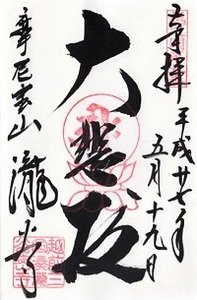 奉拝
平成廿七年
五月十九日
大悲殿
摩尼宝山
瀧谷寺